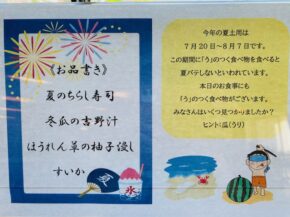 《お品書き》
夏のちらし寿司
冬瓜の吉野汁
ほうれん草の柚子浸し
すいか
氷
今年の夏土用は
7月20日~8月7日です。
この期間に「う」のつく食べ物を食べると
夏バテしないといわれています。
本日のお食事にも
「う」のつく食べ物がございます。
みなさんはいくつ見つかりましたか?
ヒント:瓜(うり)